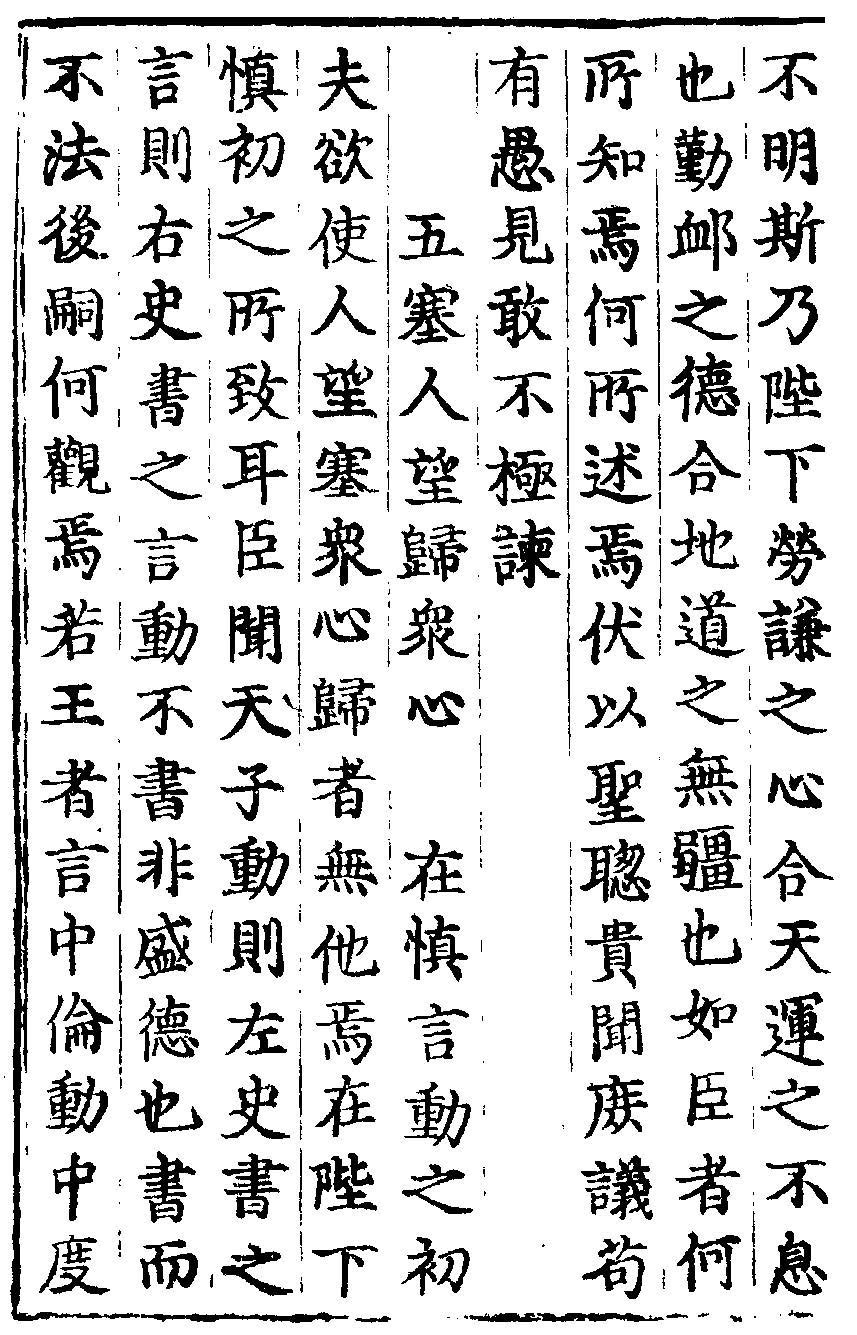 不明斯乃陛下勞謙之心合天運之不息
也勤䘏之德合地道之無疆也如臣者何
所知焉何所述焉伏以聖聰貴聞庶議苟
有愚見敢不極諫
五塞人望歸衆心　在慎言動之初
夫欲使人望塞衆心歸者無他焉在陛下
慎初之所致耳臣聞天子動則左史書之
言則右史書之言動不書非盛德也書而
不法後嗣何觀焉若王者言中倫動中度